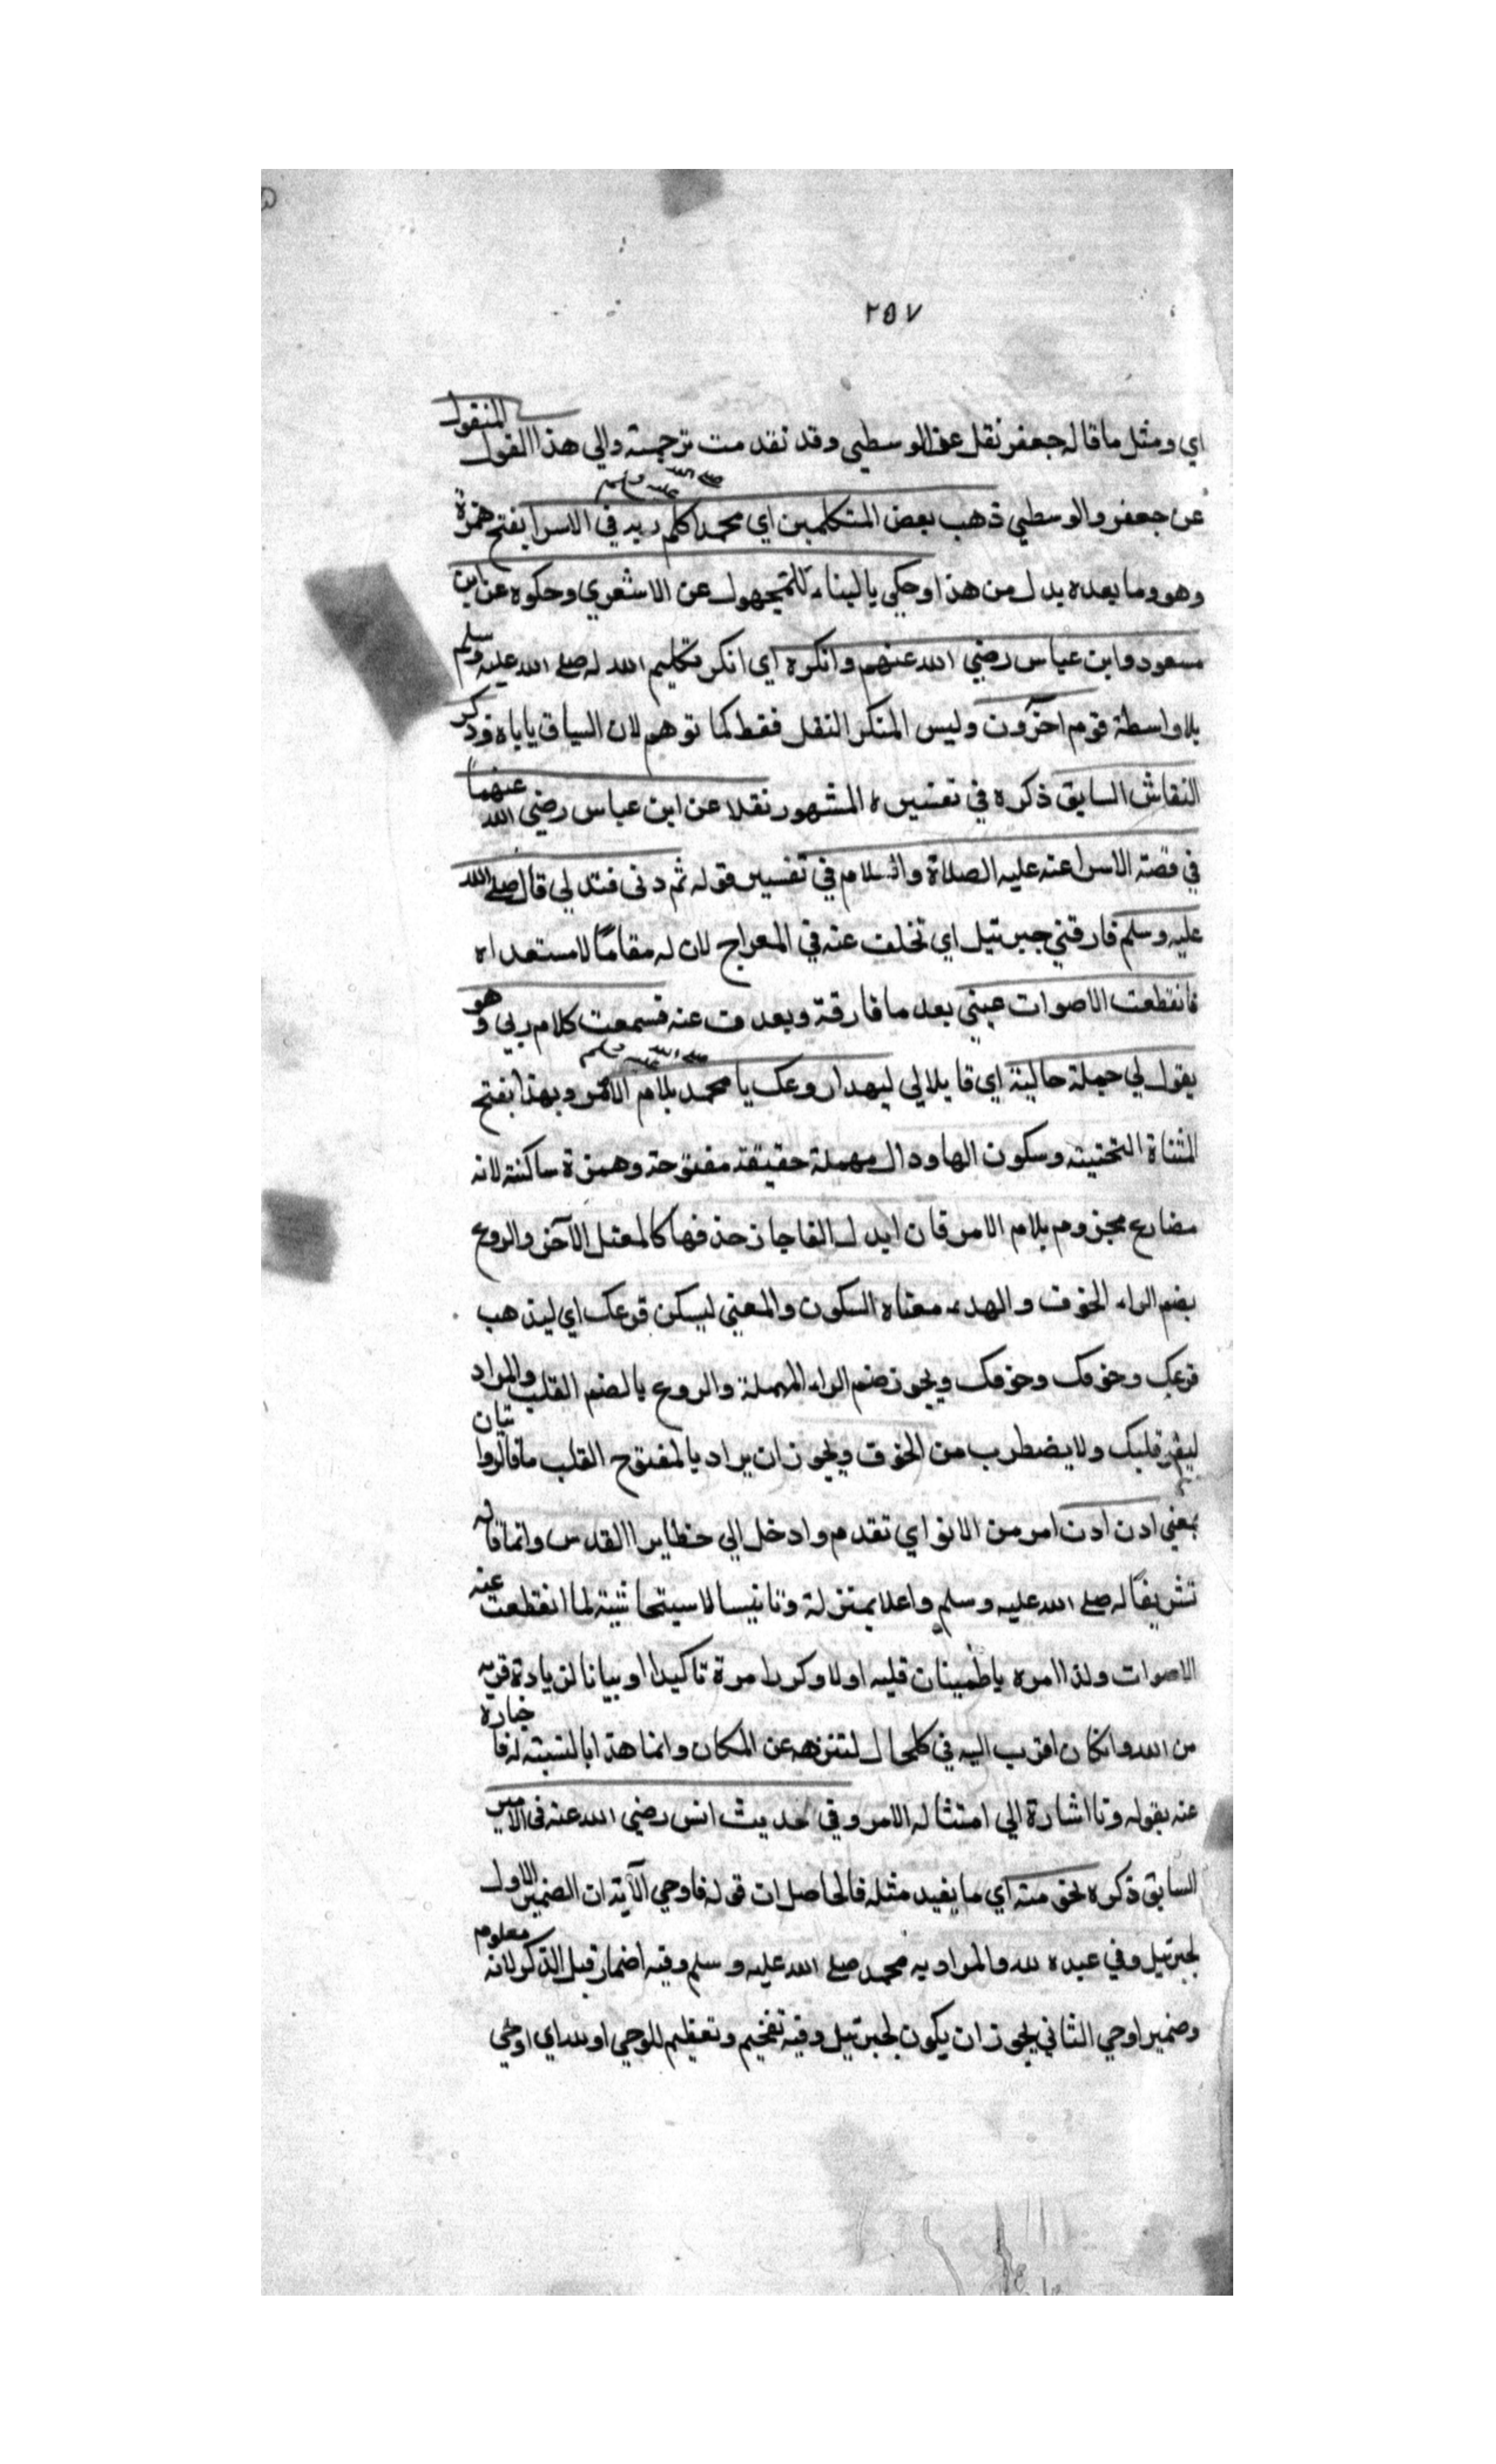 ٢٥٧
اي ومثل ما قاله جعفر نقل عن الوسطي وقد تقدمت ترجمته والي هذا القول المنقول
عن جعفر والوسطي ذهب بعض المتكلمين اي محمدا صلى الله عليه وسلم كلم ربه في الاسرا بفتح همزة
وهو وما بعده بدل من هذا وحكي بالبناء للمجهول عن الاشعري وحكوه عن ابن
مسعود وابن عباس رضي الله عنهم وانكره اي انكر تكليم الله له صلى الله عليه وسلم
بلا واسطة قوم آخرون وليس المنكر النقل فقط كما توهم لان السياق ياباه وذكر
النقاش السابق ذكره في تفسيره المشهور نقلا عن ابن عباس رضي الله عنهما
في قصة الاسرا عنه عليه الصلاة والسلام في تفسير قوله ثم دنى فتدلي قال صلى الله
عليه وسلم فارقني جبرئيل اي تخلف عنه في المعراج لان له مقامًا لا
فانقطعت الاصوات عيني بعد ما فارقة وبعدت عنه فسمعت كلام ربي وهو
يقول لي جملة حالية اي قايلا لي ليهدا روعك يا محمد صلى الله عليه وسلم بلام الامر وبهدا بفتح
المثناة التحتيته وسكون الها ودال مهملة حقيقة مفتوحة وهمزة ساكنة لانه
مضارع مجزوم بلام الامر فان ابدل الفا جاز حذفها كالمعتل الآخر والروع
بضم الراء الخوف والهدء معناه السكون والمعني ليسكن فزعك اي ليذهب
فزعك وخوفك وخوفك ويجوز ضم الراء المهملة والروع بالضم القلب والمراد
ليقر قلبك ولا يضطرب من الخوف ويجوز ان يراد بالمفتوح القلب
بمعني ادن ادن امر من الانو اي تقدم وادخل الي حظاير القدس وانما قاله
تشريفًا له صلى الله عليه وسلم واعلا بمنزلة وتانيسا لما انقطعت عنه
الاصوات ولذا امره باطمينان قلبه اولا وكرر امرة تاكيدا او بيانا لزيادة قربه
من الله وانكان اقرب اليه في كلحال لتنزهه عن المكان وانما هذا بالنسبته له
عنه بقوله ونا اشارة الي امتثاله الامر وفي حديث انس رضي الله عنه في الامر
السابق ذكره نحو منه اي ما يفيد مثله فالحاصل ان قوله فاوحي الآية ان الضمير الاول
لجبرئيل وفي عبده لله والمراد به محمد صلى الله عليه وسلم وفيه اضمار قبل الذكر لانه معلوم
وضمير اوحي الثاني يجوز ان يكون لجبرئيل وفيه تفخيم وتعظيم للوحي او لله اي اوحي